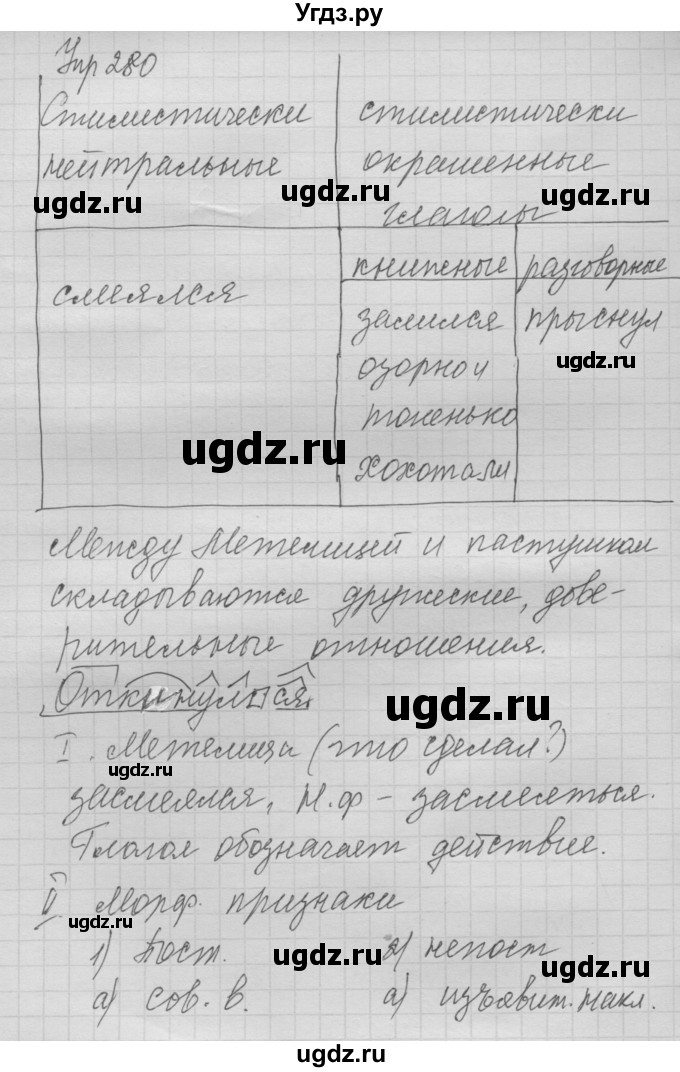 Угдз.ру
Упр 280
Стилистически
нейтральные
стилистически
окрашенные
глаголы
ugdz.ru
ugdz.ru
ugdz.ru
смеялся
книжные
разговорные
залился
озорно и
тоненько
хохотали
прыснул
ugdz.ru
ugdz.ru
Между Метелицей и пастушком
складываются дружеские, дове-
рительные отношения.
Откинулся
ugdz.ru
I. Метелица (что сделал?)
ugdz.ru
засмеялся, Н.ф - засмеяться.
Глагол обозначает действие.
II Морф. признаки
ugdz.ru
1) Пост. 2) непост
ugdz.ru
ugdz.ru
а) сов. в. а) изъявит. накл.
ugdz.ru